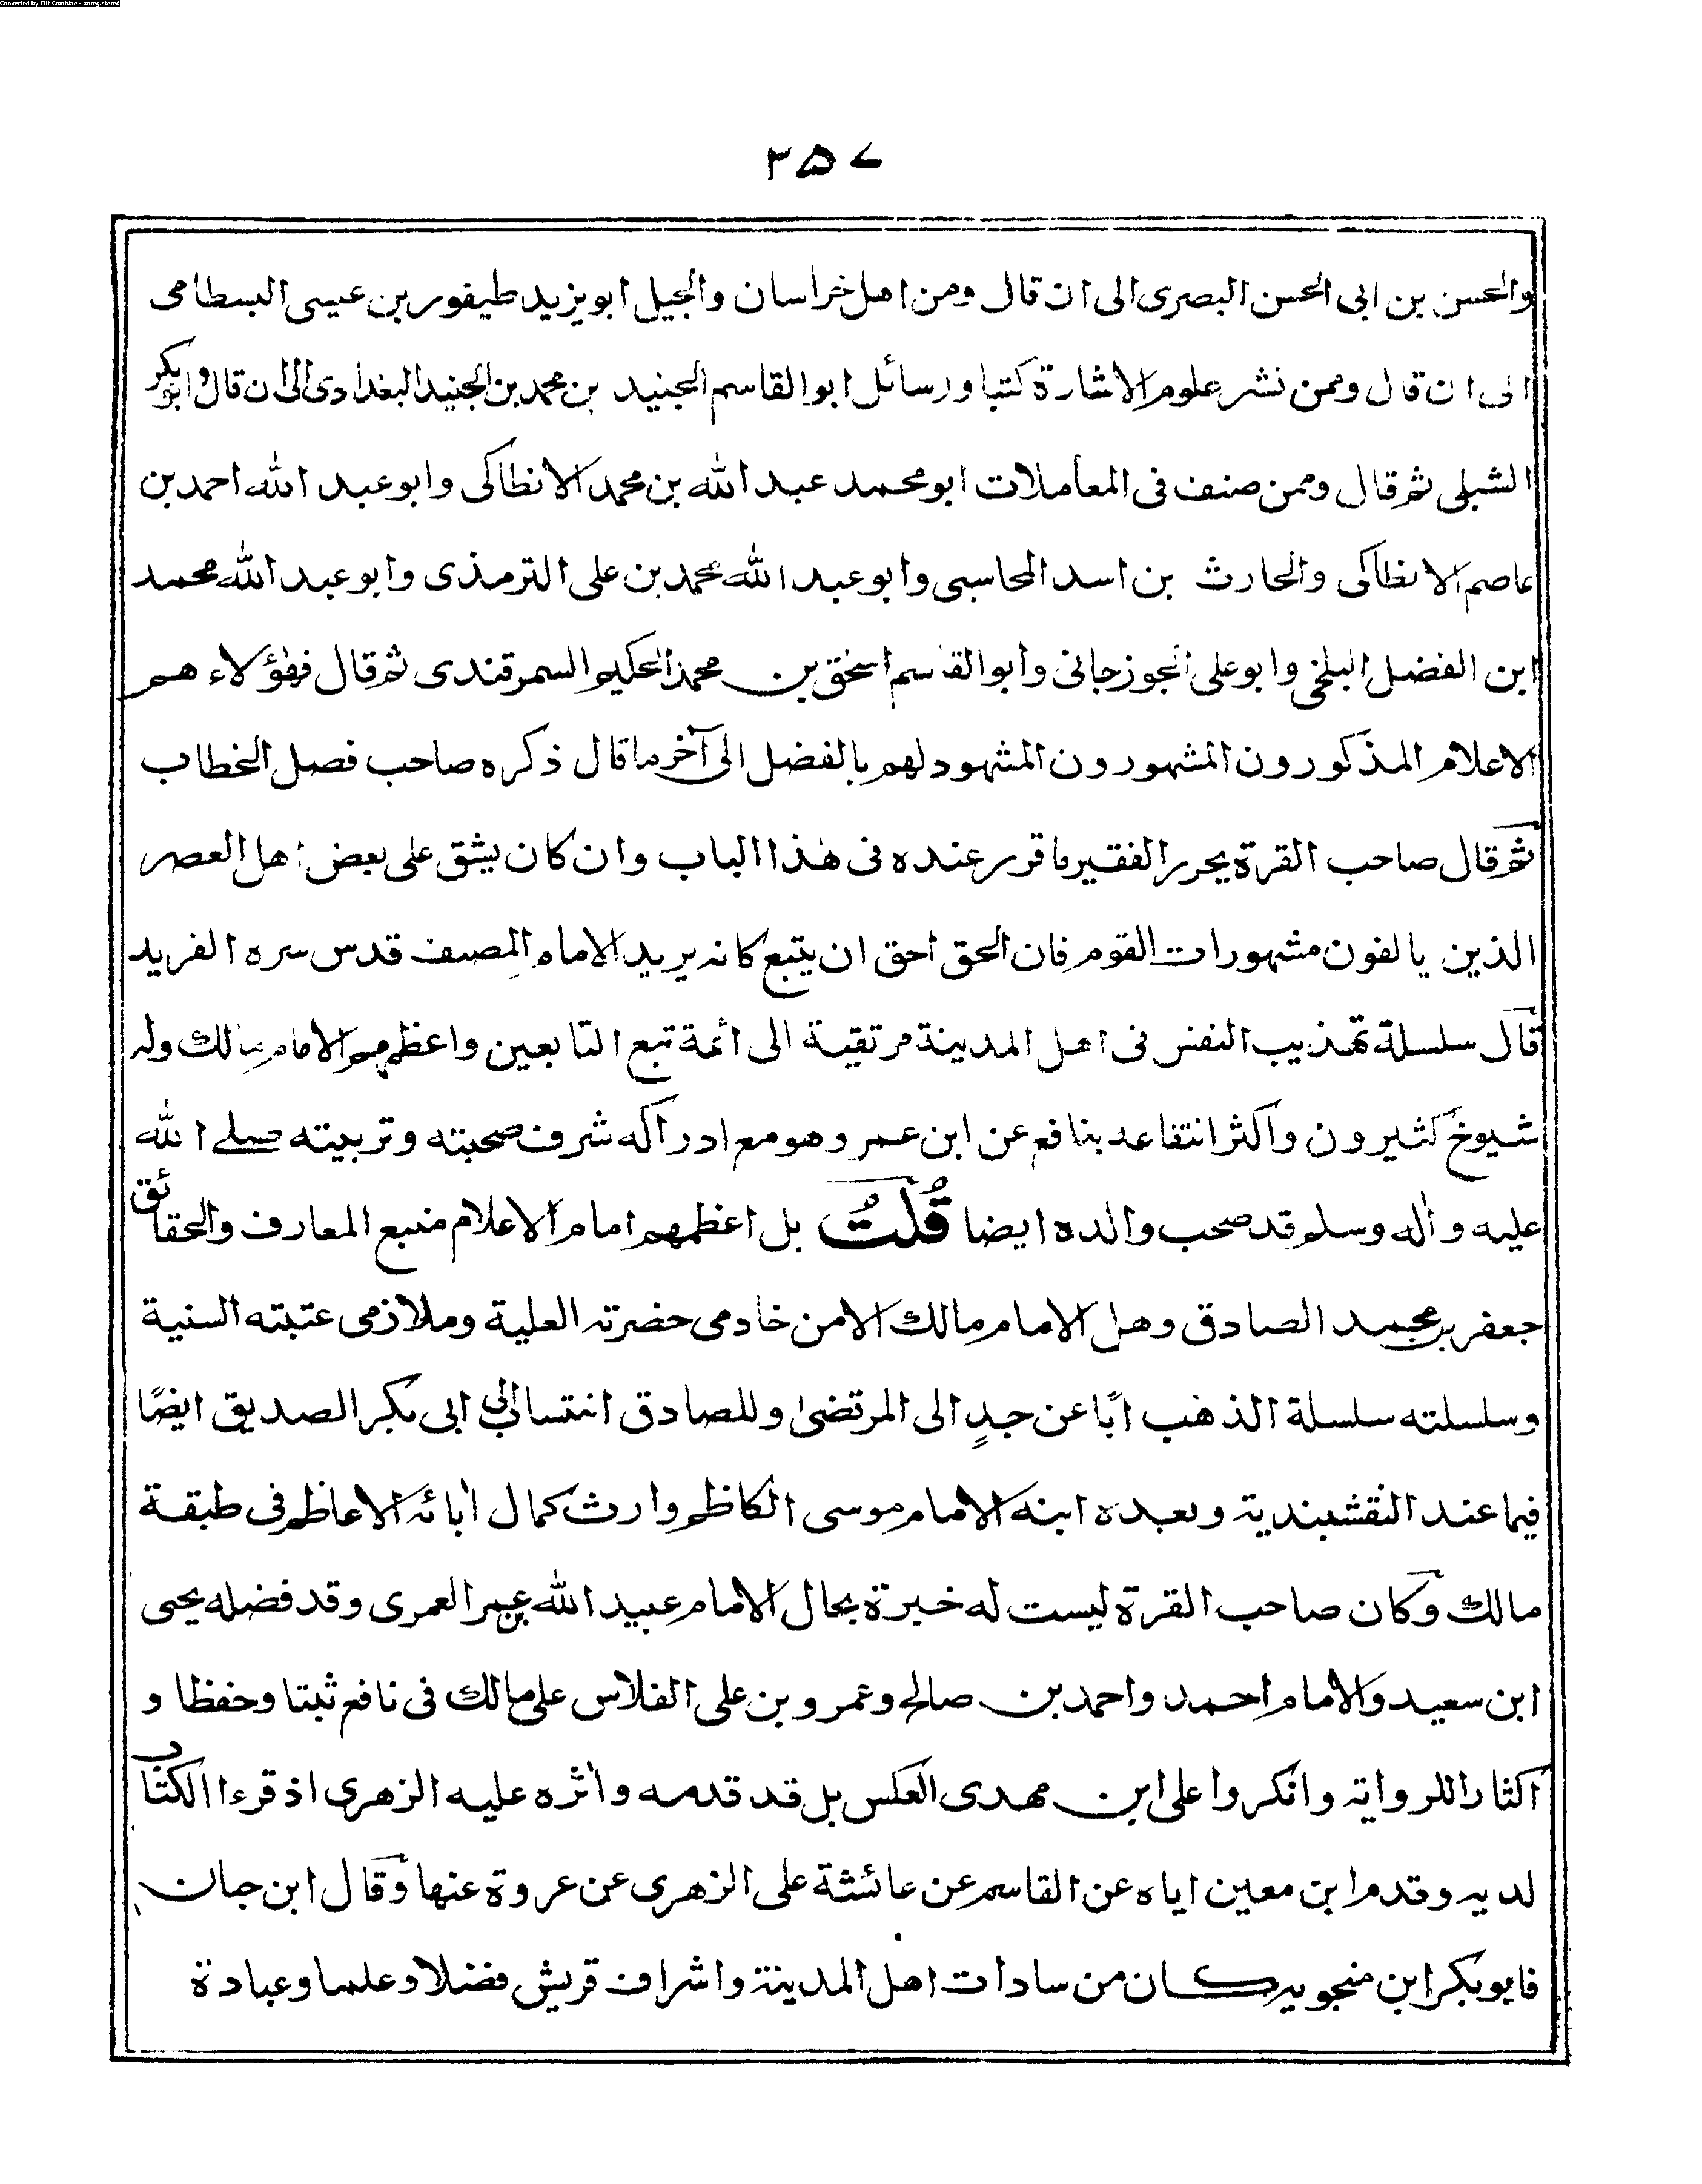 Converted by Tiff Combine - unregistered
۲۵۷
والحسن بن ابى الحسن البصرى الى ان قال ومن اهل خراسان والجبل ابو يزيد طيفور بن عيسى البسطامى
الى ان قال وممن نشر علوم الاشارة كتبا ورسائل ابو القاسم الجنيد بن محمد بن الجنيد البغدادى الى ان قال وابو بكر
الشبلى ثم قال وممن صنف فى المعاملات ابو محمد عبد الله بن محمد الانطاكى وابو عبد الله احمد بن
عاصم الانطاكى والحارث بن اسد المحاسبى وابو عبد الله محمد بن على الترمذى وابو عبد الله محمد
ابن الفضل البلخى وابو على الجوزجانى وابو القاسم اسحٰق بن محمد الحكيم السمرقندى ثم قال فهٰؤلاء هم
الاعلام المذكورون المشهورون المشهود لهم بالفضل الى آخر ما قال ذكره صاحب فصل الخطاب
ثم قال صاحب القرة يحرر الفقير ما قرر عنده فى هٰذا الباب وان كان يشق على بعض اهل العصر
الذين يالفون مشهورات القوم فان الحق احق ان يتبع كانه يريد الامام المصنف قدس سره الفريد
قال سلسلة تهذيب النفس فى اهل المدينة مرتقية الى ائمة تبع التابعين واعظمهم الامام مالك وله
شيوخ كثيرون واكثر انتفاعه بنافع عن ابن عمر وهو مع ادراكه شرف صحبته وتربيته صلے الله
عليه واٰله وسلم قد صحب والده ايضا قُلتُ بل اعظمهم امام الاعلام منبع المعارف والحقائق
جعفر بن محمد الصادق وهل الامام مالك الا من خادمى حضرته العلية وملازمى عتبته السنية
وسلسلته سلسلة الذهب ابًا عن جدٍ الى المرتضىٰ وللصادق انتساب الى ابى بكر الصديق ايضًا
فيما عند النقشبندية وبعده ابنه الامام موسى الكاظم وارث كمال اٰبائه الاعاظم فى طبقة
مالك وكان صاحب القرة ليست له خبرة بحال الامام عبيد الله بن عمر العمرى وقد فضله يحيى
ابن سعيد والامام احمد واحمد بن صالح وعمرو بن على الفلاس على مالك فى نافع ثبتا وحفظا و
اكثارا للرواية وانكروا على ابن مهدى العكس بل قد قدمه واٰثره عليه الزهرى اذ قرءا الكتاب
لديه وقدم ابن معين اياه عن القاسم عن عائشة على الزهرى عن عروة عنها وقال ابن حبان
فابو بكر ابن منجويه كان من سادات اهل المدينة واشراف قريش فضلا وعلما وعبادة